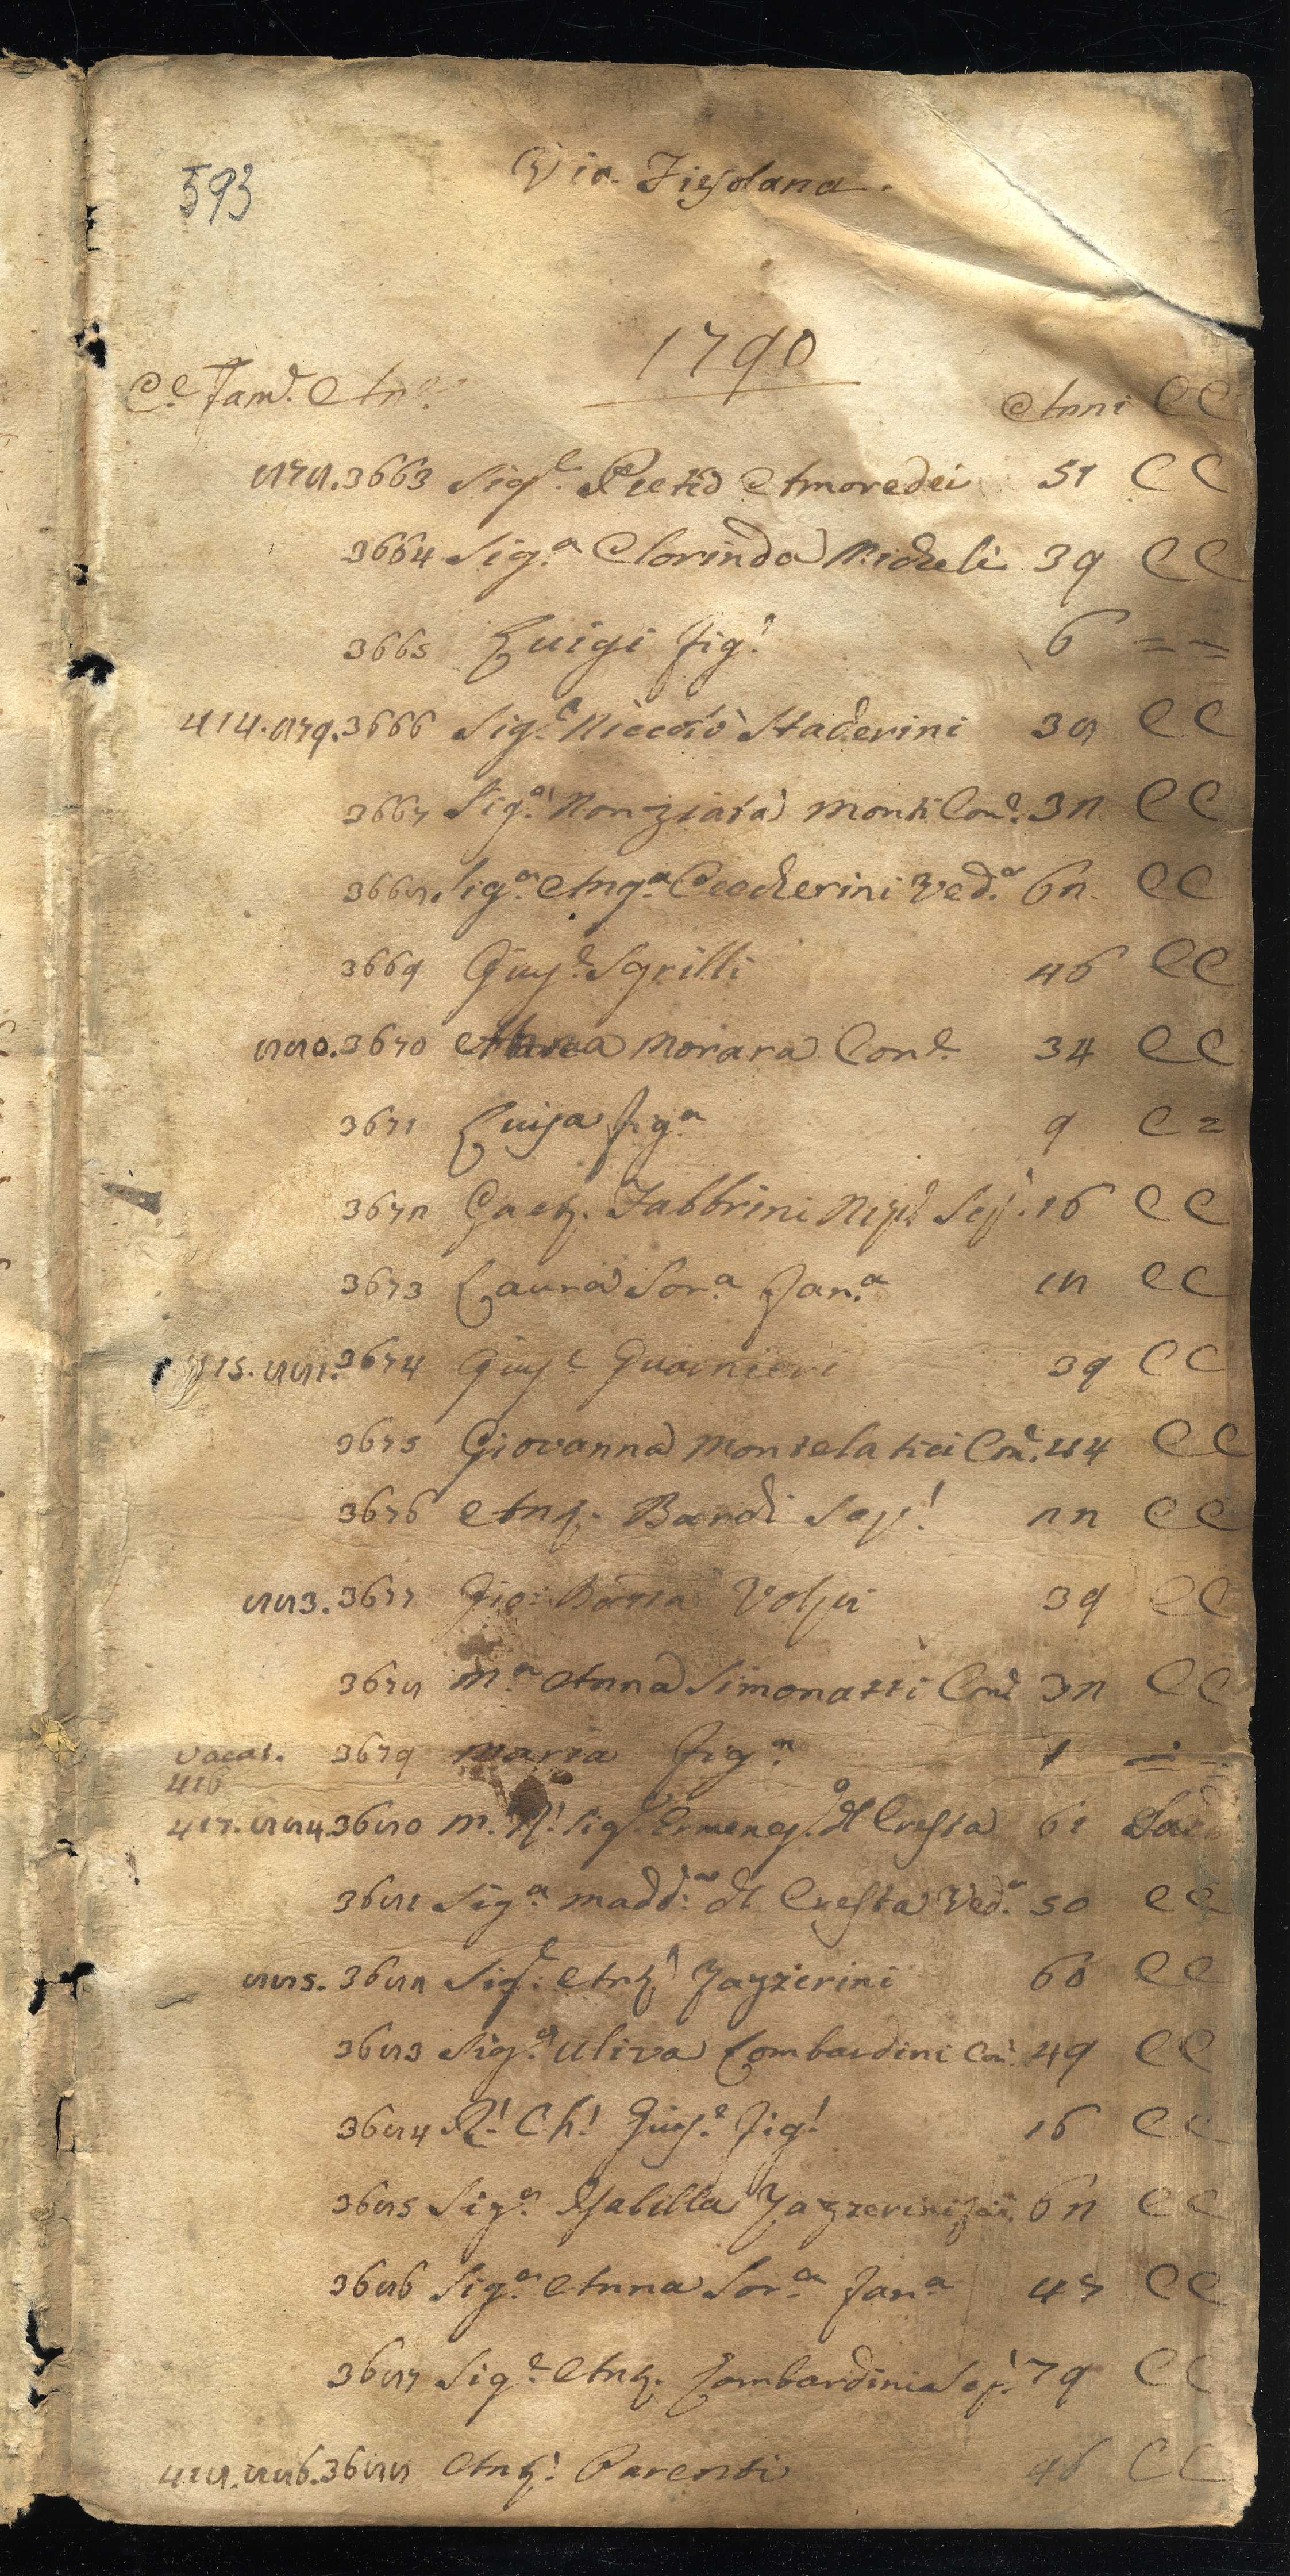 593
Via Fiesolana.
1790
C.e Fam.e An.e Anni CC
878.3663 Sig.e Pietro Amoredei 51 CC
3664 Sig.a Clorinda Micheli 39 CC
3665 Luigi fig.! 6 = =
414.879.3666 Sig.e Niccolò Staderini 38 CC
3667 Sig.a Nonziata Monti Con.e 32 CC
3668 Sig.a Ang.a Ceccherini Ved.a 62 CC
3669 Gius.e Sgrilli 46 CC
880.3670 Anna Morara Con.e 34 CC
3671 Luisa fig.a 9 C =
3672 Gaet. Fabbrini Nip.e Sep.! 16 CC
3673 Laura Sor.a Fan.a 12 CC
415.881.3674 Gius.e Guarnieri 39 CC
3675 Giovanna Montelatici Con.e 44 CC
3676 Ant. Bandi Sep.! 22 CC
883.3677 Gio: Batta Volpi 39 CC
3678 M.a Anna Simonatti Con.e 32 CC
vacat. 3679 Maria fig.a 1 = =
416
417.884.3680 M. R.! Sig.e Ermeneg.do del Cresta 61 Sac
3681 Sig.a Madd.a del Cresta Ved.a 50 CC
885.3682 Sig.e Ant.! Zazzerini 60 CC
3683 Sig.a Uliva Lombardini Con. 49 CC
3684 R.! Ch.! Gius.e fig.! 16 CC
3685 Sig.a Isabella Zazzerini fan. 62 CC
3686 Sig.a Anna Sor.a Fan.a 47 CC
3687 Sig.e Ant. Lombardini Sep. 79 CC
418.886.3688 Ant.! Parenti 46 CC